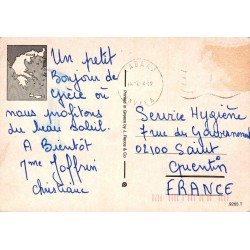 Un petit
Bonjour de
Grèce où
nous profitons
du beau soleil.
A Bientôt
Mme Joffrin
Christiane
Printed in Greece by
Service Hygiène
7 rue du Gouvernement
02100 Saint
Quentin
FRANCE